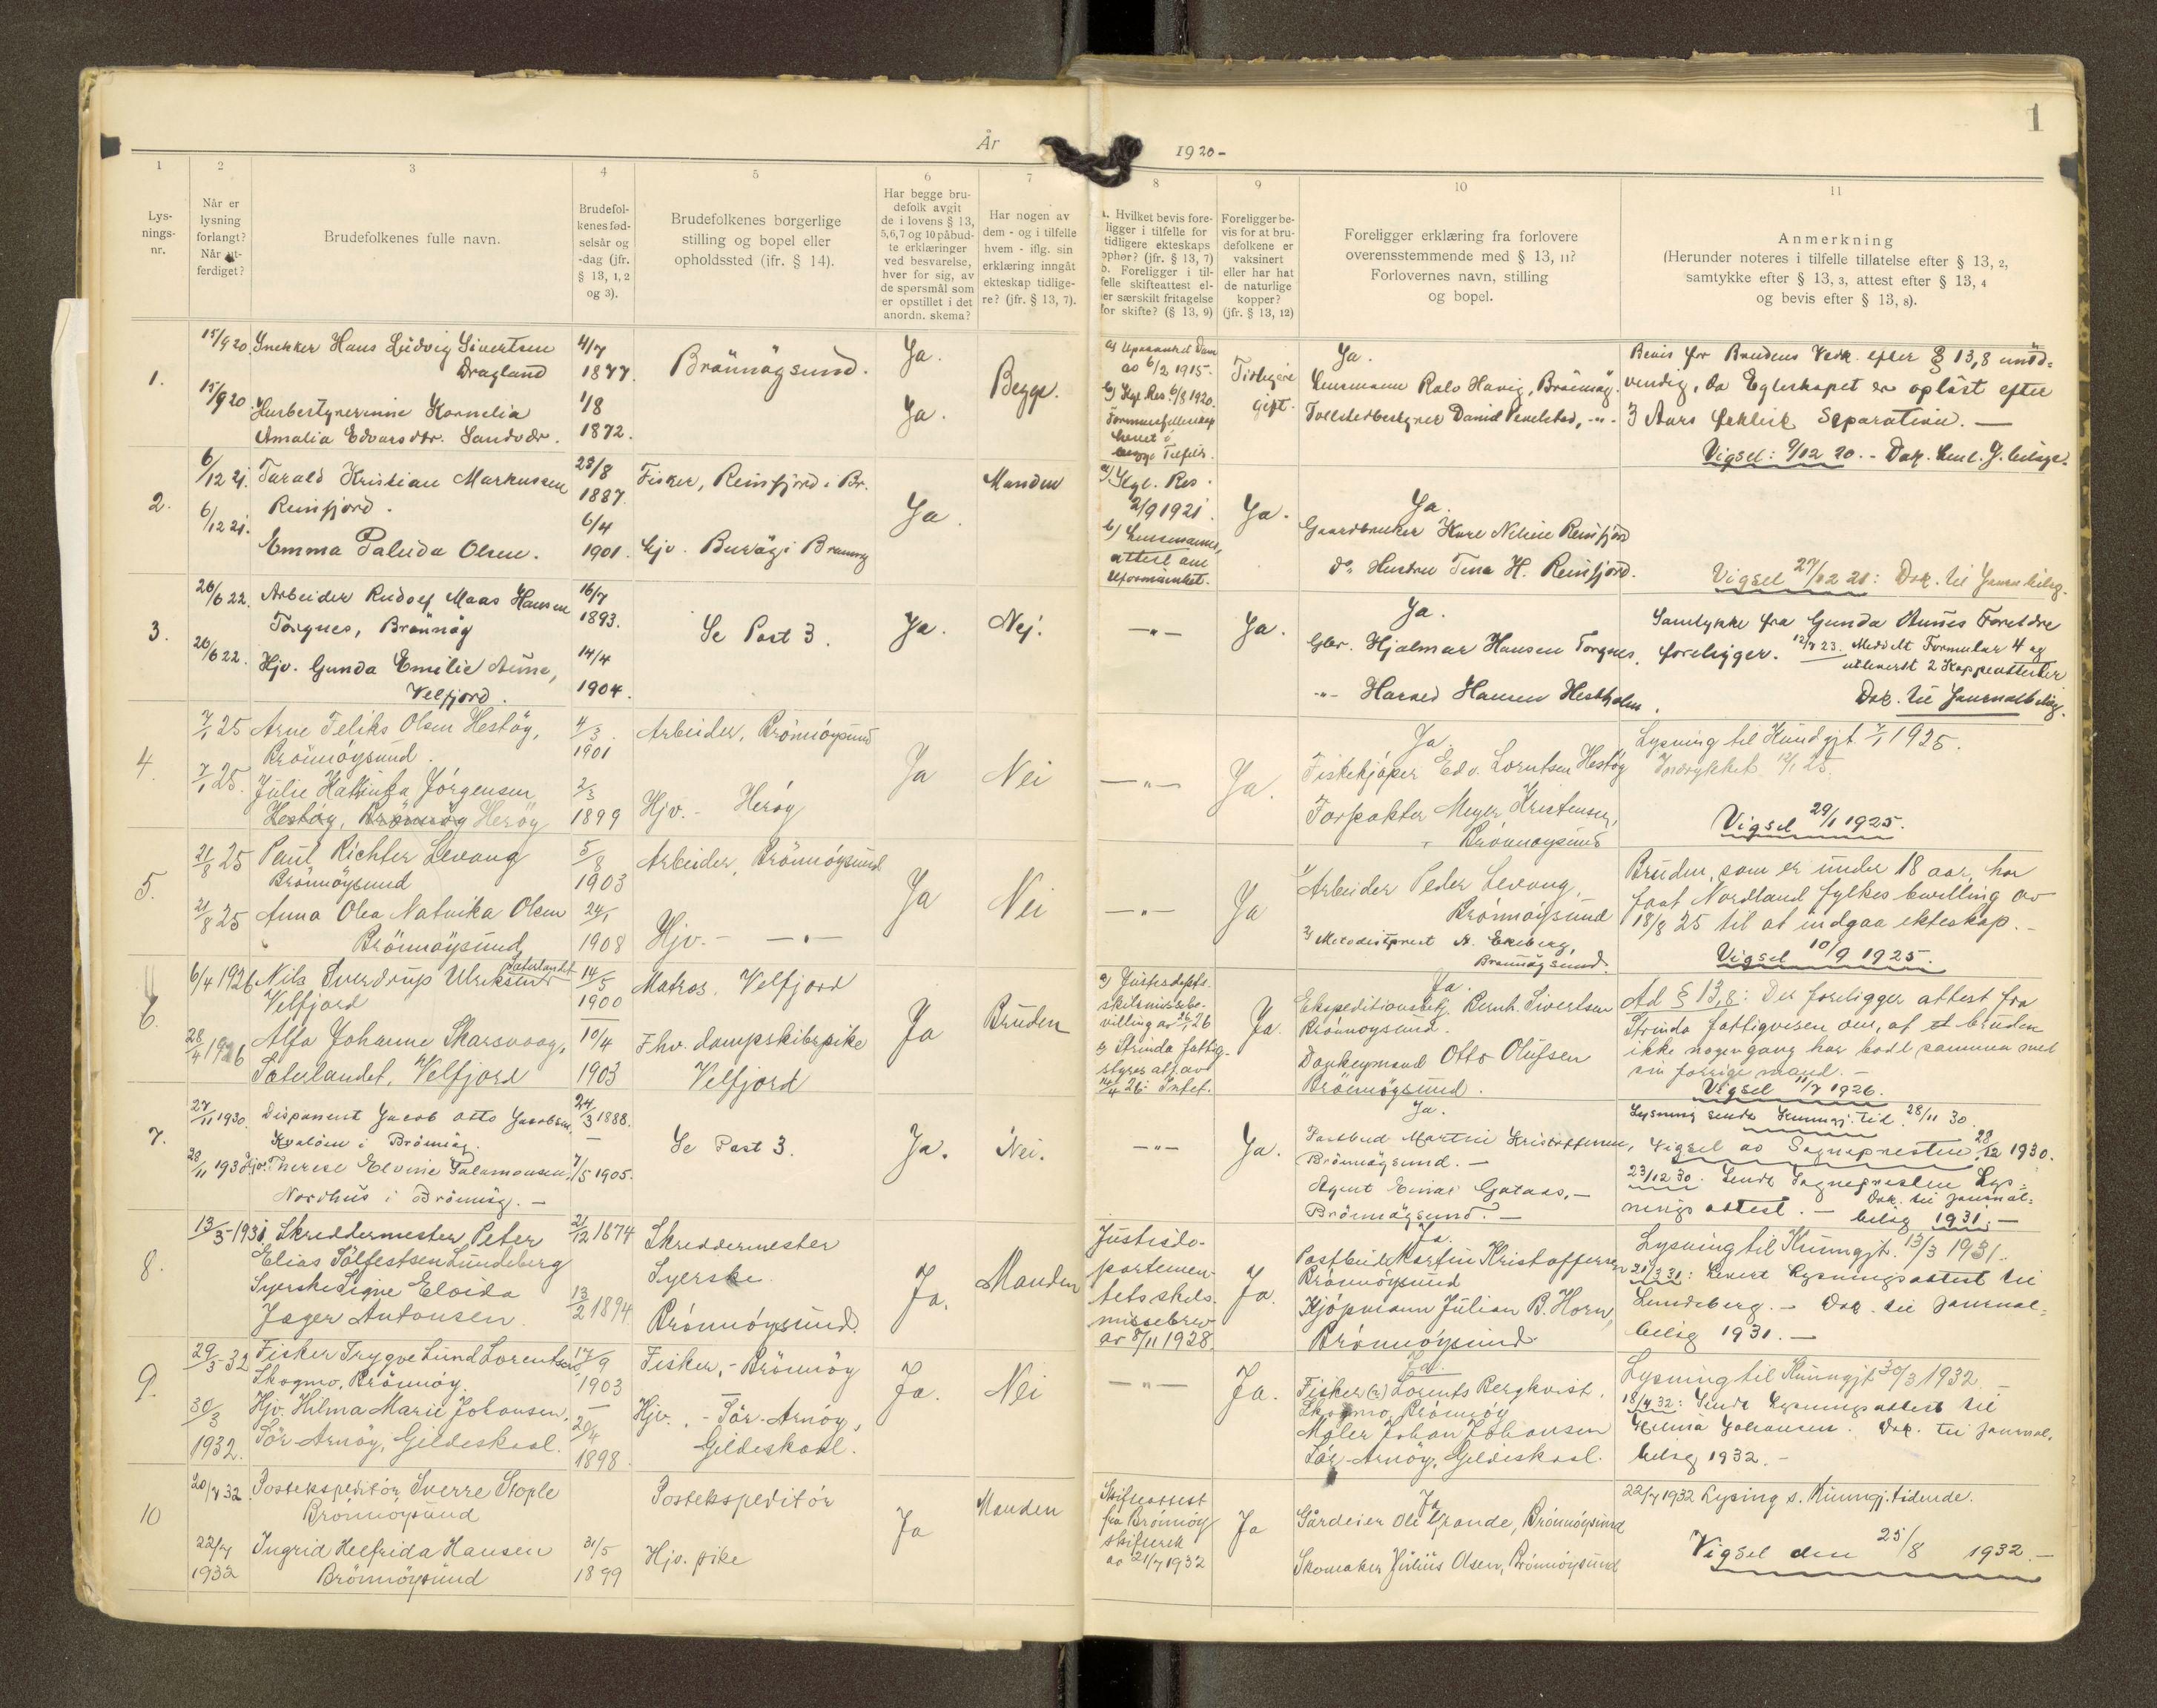 1
År
1920-
1
2
3
4
5
6
7
8
9
10
11
Lys-
nings-
nr.
Når er
lysning
forlangt?
Når ut-
ferdiget?
Brudefolkenes fulle navn.
Brudefol-
kenes fød-
selsår og
-dag (jfr.
§ 13, 1, 2
og 3).
Brudefolkenes borgerlige
stilling og bopel eller
opholdssted (jfr. § 14).
Har begge bru-
defolk avgit
de i lovens § 13,
5,6,7 og 10 påbud-
te erklæringer
ved besvarelse,
hver for sig, av
de spørsmål som
er opstillet i det
anordn. skema?
Har nogen av
dem - og i tilfelle
hvem - iflg. sin
erklæring inngåt
ekteskap tidlige-
re? (jfr. § 13, 7).
a. Hvilket bevis fore-
ligger i tilfelle for
tidligere ekteskaps
ophør? (jfr. § 13, 7)
b. Foreligger i til-
felle skifteattest el-
ler særskilt fritagelse
for skifte? (§ 13, 9)
Foreligger be-
vis for at bru-
defolkene er
vaksinert
eller har hat
de naturlige
kopper?
(jfr. § 13, 12)
Foreligger erklæring fra forlovere
overensstemmende med § 13, 11?
Forlovernes navn, stilling
og bopel.
Anmerkning
(Herunder noteres i tilfelle tillatelse efter § 13, 2,
samtykke efter § 13, 3, attest efter § 13, 4
og bevis efter § 13, 8).
1.
15/9 20.
15/9 20.
Snekker Hans Ludvig Sivertsen
Dragland
Husbestyrerinne Kornelia
Amalia Edvarsdtr. Sandvær.
4/7
1877.
1/8
1872.
Brönnöysund.
Ja.
Ja.
Begge.
a) Upaaanket Dom
av 6/2 1915.
b) Kgl. Res. 6/8 1920.
Formuesfellesskap
hevet i
begge Tilfelde.
Tidligere
gift.
Ja.
Lensmann Rolv Havig, Brönnöy.
Bevis for Brudens Vedk. efter § 13,8 unöd-
vendig, da Egteskapet er oplöst efter
3 Aars faktisk Separation. —
Vigsel: 9/12 20.
2.
6/12 21.
6/12 21.
Tarald Kristian Markussen
Reinfjord.
Emma Palida Olsen.
23/8
1887.
6/4
1901.
Fisker, Reinfjord i Br.
Hjv.
Ja.
Manden
a) Kgl. Res.
2/9 1921.
b) Lensmanns
attest om
Uformuenhet.
Ja.
Ja.
Gaardbruker Hans Nilsen Reinfjord
do Hustru Tina H. Reinfjord.
Vigsel 27/12 21: Dok. til Journalbilag.
3.
20/6 22.
20/6 22.
Arbeider Rudolf Maas Hansen
Torgnes, Brönnöy
Hjv. Gunda Emilie Aune,
Velfjord.
16/7
1893.
14/4
1904.
Se Post 3.
Ja.
Nej.
—"—
Ja.
Ja.
Gbr. Hjalmar Hansen Torgnes.
-"- Harald Hansen Hestholm.
Samtykke fra Gunda Aunes Foreldre
foreligger. 12/7 23. Meddelt Formular 4 og
utleveret 2 Koppeattester
Dok. til Journalbilag.
4.
7/1 25
7/1 25.
Arne Feliks Olsen Hestöy,
Brönnöysund.
Julie Katinka Jörgensen
Hestöy, Brönnöy Heröy
4/3.
1901
2/3
1899
Arbeider, Brönnöysund
Hjv. - Heröy
Ja
Nei
—"—
Ja.
Ja.
Fiskekjöper Edv. Lorntsen Hestöy
Forpakter Meyer Kristensen,
Brönnöysund
Lysning til Kundgjt. 7/1 1925.
Indrykket 12/1 25.
Vigsel 29/1 1925.
5.
21/8 25
21/8 25
Paul Richter Levang
Brönnöysund
Anna Olea Natvika Olsen
Brönnöysund
5/8
1903
24/1
1908
Arbeider, Brönnöysund
Hjv. - —"—
Ja
Nei
—"—
Ja
1) Arbeider Peder Levang,
Brönnöysund
2) Metodistprest A. Ekeberg,
Brönnöysund.
Bruden, som er under 18 aar, har
faat Nordland fylkes bevilling av
18/8 25 til at indgaa ekteskap. -
Vigsel 10/9 1925.
6.
6/4 1926
28/4 1926
Nils Sverdrup Ulriksen Sæterlandet
Velfjord
Alfa Johanne Skarsvaag,
Sæterlandet, Velfjord
14/5
1900
10/4
1903
Matros, Velfjord
Fhv. dampskibspike
Velfjord
Ja
Bruden
a) Justisdepts.
skilsmissebe-
villing av 26/1 26
b) Strinda fattig-
styres att. av
14/4 26: Intet.
Ja.
Ja.
Ekspeditionsbetj. Bernh. Sivertsen
Brönnöysund.
Donkeymand Otto Olufsen
Brönnöysund.
Ad § 13,8: Der foreligger attest fra
Strinda fattigvesen om, at bruden
ikke nogengang har bodd sammen med
sin forrige mand. -
Vigsel 11/7 1926.
7.
27/11 1930.
28/11 1930
Disponent Jacob Otto Jacobsen,
Kvalöen i Brönnöy.
Hjv. Therese Elvine Salamonsen,
Nordhus i Brönnöy. -
24/3 1888.
7/5 1905.
Se Post 3.
Ja.
Nei.
—"—
Ja.
Ja.
Postbud Martin Kristoffersen,
Brönnöysund. -
Agent Einar Gataas, -
Brönnöysund. -
Lysning sendt Kunngj. tid. 28/11 30.
Vigsel av Sognepresten 28/12 1930.
23/12 30. Sendt Sognepresten Lys-
ningsattest. - Dok. til Journal-
bilag 1931. -
8.
13/3-1931.
Skreddermester Peter
Elias Sölfestsen Lundeberg
Syerske Signe Eloida
Jager Antonsen.
21/12 1874
13/2 1894
Skreddermester
Syerske
Brönnöysund.
Ja.
Manden
Justisde-
partemen-
tets skils-
missebrev
av 8/11 1928.
Ja.
Ja.
Postbud Martin Kristoffersen
Brönnöysund
Kjöpmann Julian B. Horn,
Brönnöysund
Lysning til Kunngjt. 13/3 1931.
21/3 31: Levert Lysningsattest til
Lundeberg. - Dok. til Journal-
bilag 1931. -
9.
29/3-32
30/3
1932.
Fisker Trygve Lund Lorentsen
Skogmo, Brönnöy
Hjv. Hilma Marie Johansen,
Sör-Arnöy, Gildeskaal.
17/9
1903
20/4
1898
Fisker, - Brönnöy
Hjv. - Sör-Arnöy,
Gildeskaal.
Ja.
Nei
—"—
Ja.
Ja.
Fisker Lorents Bergkvist,
Skogmo, Brönnöy
Maler Johan Johansen
Sör-Arnöy, Gildeskaal.
Lysning til Kunngjt 30/3 1932. -
18/4 32: Sendt Lysningsattest til
Hilma Johansen. Dok. til Journal-
bilag 1932. -
10
20/7 32.
22/7
1932
Postekspeditör Sverre Stople
Brönnöysund
Ingrid Helfrida Hansen
Brönnöysund
31/5
1899
Postekspeditör
Hjv. pike
Ja
Manden
Skifteattest
fra Brönnöy
skifterett
av 21/7 1932
Ja
Ja
Gårdeier Ole Grande, Brönnöysund
Skomaker Julius Olsen, Brönnöysund
22/7 1932 Lysing s. Kunngj.tidende.
Vigsel den 25/8 1932. -